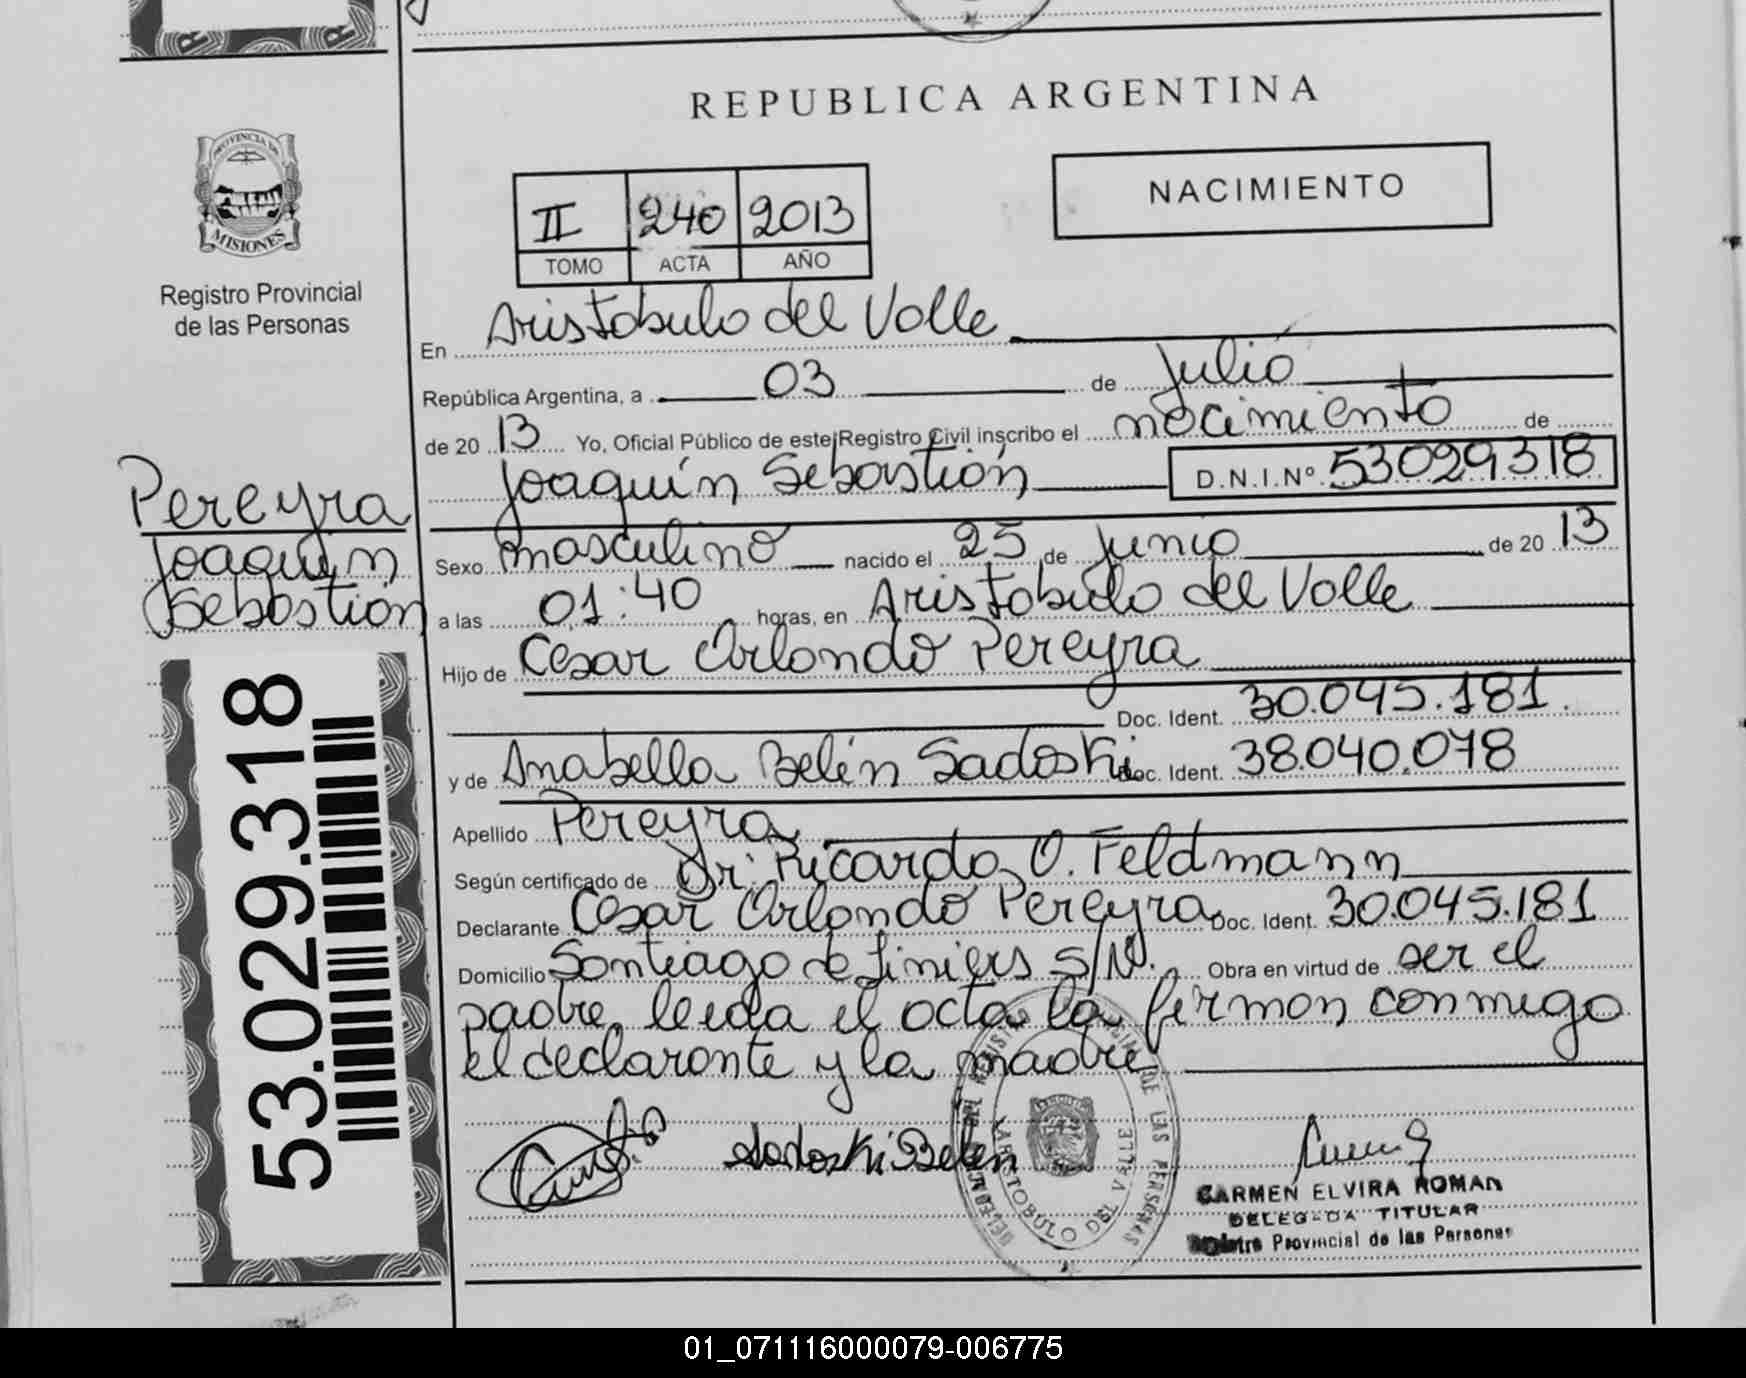 REPUBLICA ARGENTINA
PROVINCIA DE
MISIONES
Registro Provincial
de las Personas
II 240 2013
TOMO ACTA AÑO
NACIMIENTO
En Aristobulo del Valle
República Argentina, a 03 de julio
de 20 13 Yo, Oficial Público de este Registro Civil inscribo el nacimiento de
Joaquín Sebastián D.N.I.Nº 53029318
Pereyra
Joaquín
Sebastián
Sexo masculino nacido el 25 de junio de 20 13
a las 01:40 horas, en Aristobulo del Valle
Hijo de Cesar Orlando Pereyra
Doc. Ident. 30.045.181.
y de Anabella Belén Sadoski Doc. Ident. 38.040.078
Apellido Pereyra
Según certificado de Dr: Ricardo O. Feldmann
Declarante Cesar Orlando Pereyra Doc. Ident. 30.045.181
Domicilio Santiago de Liniers S/N. Obra en virtud de ser el
padre, leida el acta la firman conmigo
el declarante y la madre
53.029.318
Sadoski Belen
ARISTOBULO DEL VALLE
DE LAS PERSONAS
CARMEN ELVIRA ROMAN
DELEGADA TITULAR
Registro Provincial de las Personas
01_071116000079-006775